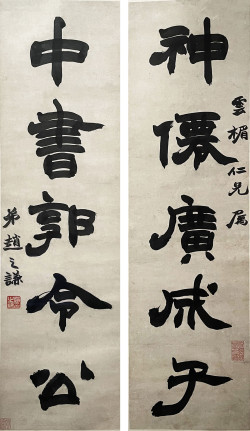 雲楣仁兄屬
神僊廣成子
中書郭令公
弟趙之謙